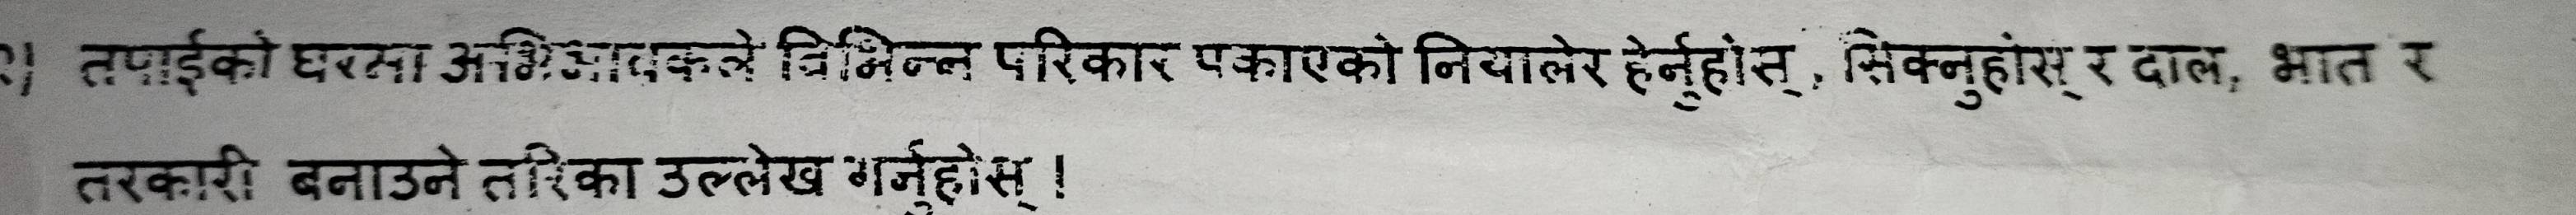 २) तपाईको घरमा अभिभावकले विभिन्न परिकार पकाएको नियालेर हेर्नुहोस्, सिक्नुहोस् र दाल, भात र
तरकारी बनाउने तरिका उल्लेख गर्नुहोस् !